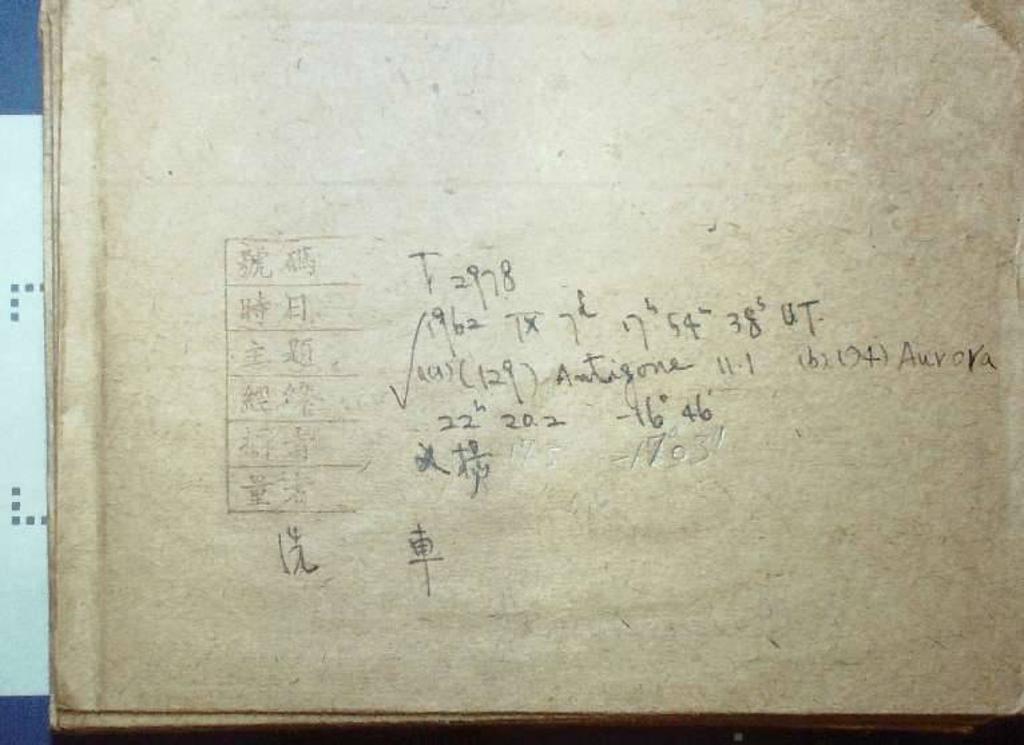 號碼 T 2978
時日 1962 IX 7d 17h 54m 38s UT.
主題 (a) (129) Antigone 11.1 (b) (94) Aurora
經緯 22h 20.2 -16° 46'
楊 17.5 -17° 03'
量者
洗 車